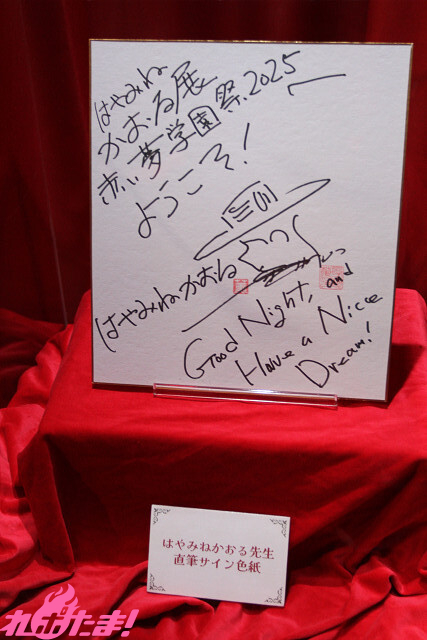 はやみね
かおる展
赤い夢学園祭2025
ようこそ!
はやみねかおる
Good Night, and
Have a Nice
Dream!
はやみねかおる先生
直筆サイン色紙
れポたま!